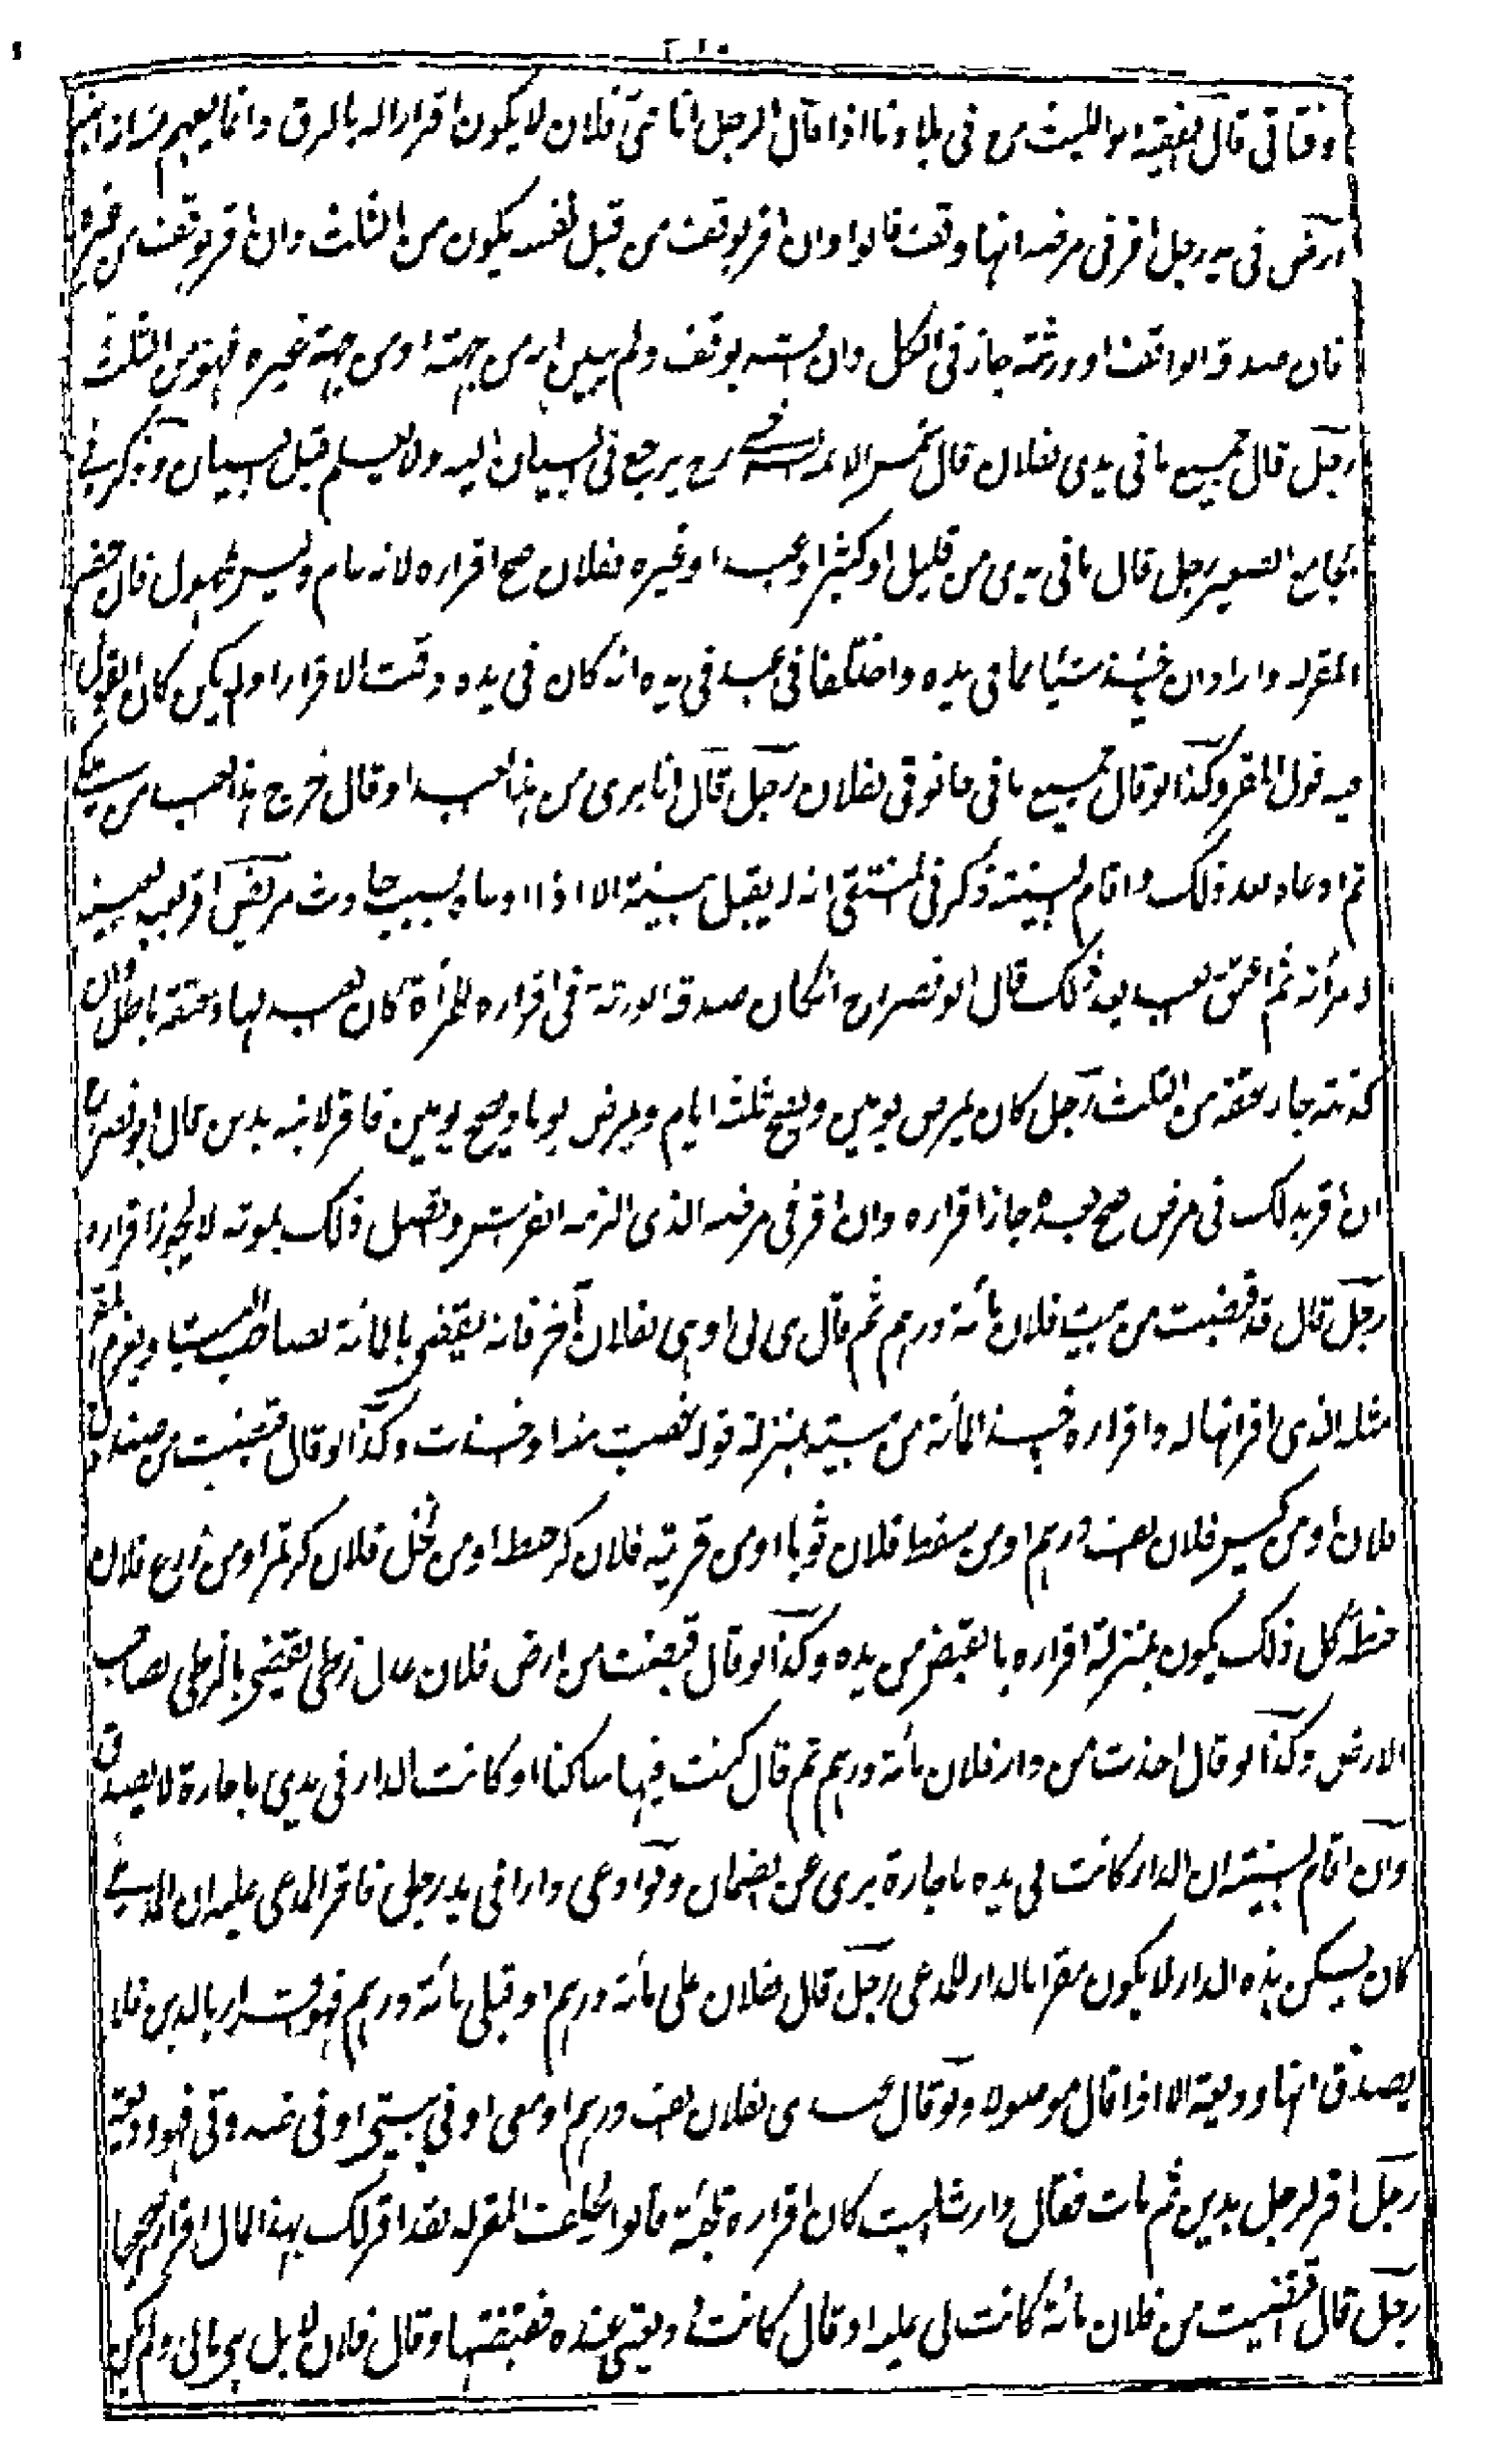 ٢١٠
او فتاتي قال الفقيه ابو الليث رح في بلادنا اذا قال الرجل انا فتى فلان لا يكون اقرارا له بالرق وانما يفهم منه انه
ارض في يد رجل اقر في مرضه انها وقف قالوا وان اقر بوقف من قبل نفسه يكون من الثلث وان اقر بوقف من غيره
فان صدقه الواقف او ورثته جاز في الكل وان اقر بوقف ولم يبين انه من جهته او من جهة غيره فهو من الثلث
رجل قال جميع ما في يدي لفلان قال شمس الائمة السرخسي رح يرجع في البيان اليه ولا يعلم قبل البيان وذكر في
الجامع الصغير رجل قال ما في يدي من قليل او كثير او عبد او غيره لفلان صح اقراره لانه عام وليس بمجهول فان حضر
المقر له واراد ان يأخذ شيئا مما في يده واختلفا في عبد في يده انه كان في يده وقت الاقرار او لم يكن كان القول
فيه قول المقر وكذا لو قال جميع ما في حانوتي لفلان رجل قال انا بريء من هذا العبد او قال خرج هذا العبد من ملكي
ثم ادعاه بعد ذلك واقام البينة ذكر في المنتقى انه لا يقبل بينته الا اذا ادعاه بسبب حادث مريض اقر بعبد بعينه
لامرأته ثم اعتق العبد بعد ذلك قال ابو نصر رح ان كان صدقه الورثة في اقراره للمرأة كان العبد لها وعتقه باطل وان
كذبته جاز عتقه من الثلث رجل كان يمرض يومين ويصح ثلثة ايام ويمرض يوما ويصح يومين فاقر لابنه بدين قال ابو نصر رح
ان اقر بذلك في مرض صح بعده جاز اقراره وان اقر في مرضه الذي الزمه الفراش ويتصل ذلك بموته لا يجوز اقراره
رجل قال قد قبضت من بيت فلان مائة درهم ثم قال هي لي او هي لفلان آخر فانه يقضى بالمائة لصاحب البيت ويغرم المقر
مثله الذي اقر انها له واقراره باخذ المائة من بيته بمنزلة قوله غصبت منه او اخذت وكذا لو قال قبضت من صندوق
فلان او من كيس فلان الف درهم او من سفط فلان ثوبا او من قرية فلان كر حنطة او من نخل فلان كر تمر او من زرع فلان
حنطة كل ذلك يكون بمنزلة اقراره بالقبض من يده وكذا لو قال قبضت من ارض فلان عدل زطي يقضى بالزطي لصاحب
الارض وكذا لو قال اخذت من دار فلان مائة درهم ثم قال كنت فيها ساكنا او كانت الدار في يدي باجارة لا يصدق
وان اقام البينة ان الدار كانت في يده باجارة برئ عن الضمان ولو ادعى دارا في يد رجل فاقر المدعى عليه ان المدعي
كان يسكن هذه الدار لا يكون مقرا بالدار للمدعي رجل قال لفلان علي مائة درهم او قبلي مائة درهم فهو اقرار بالدين فلا
يصدق انها وديعة الا اذا قال موصولا ولو قال عندي لفلان الف درهم او معي او في بيتي او في صندوقي فهو وديعة
رجل اقر لرجل بدين ثم مات فقال وارث الميت كان اقراره تلجئة قالوا يحلف المقر له لقد اقر لك بهذا المال اقرارا صحيحا
رجل قال اقتضيت من فلان مائة كانت لي عليه او قال كانت وديعتي عنده فقبضتها وقال فلان لا بل هي مالي ولم يكن